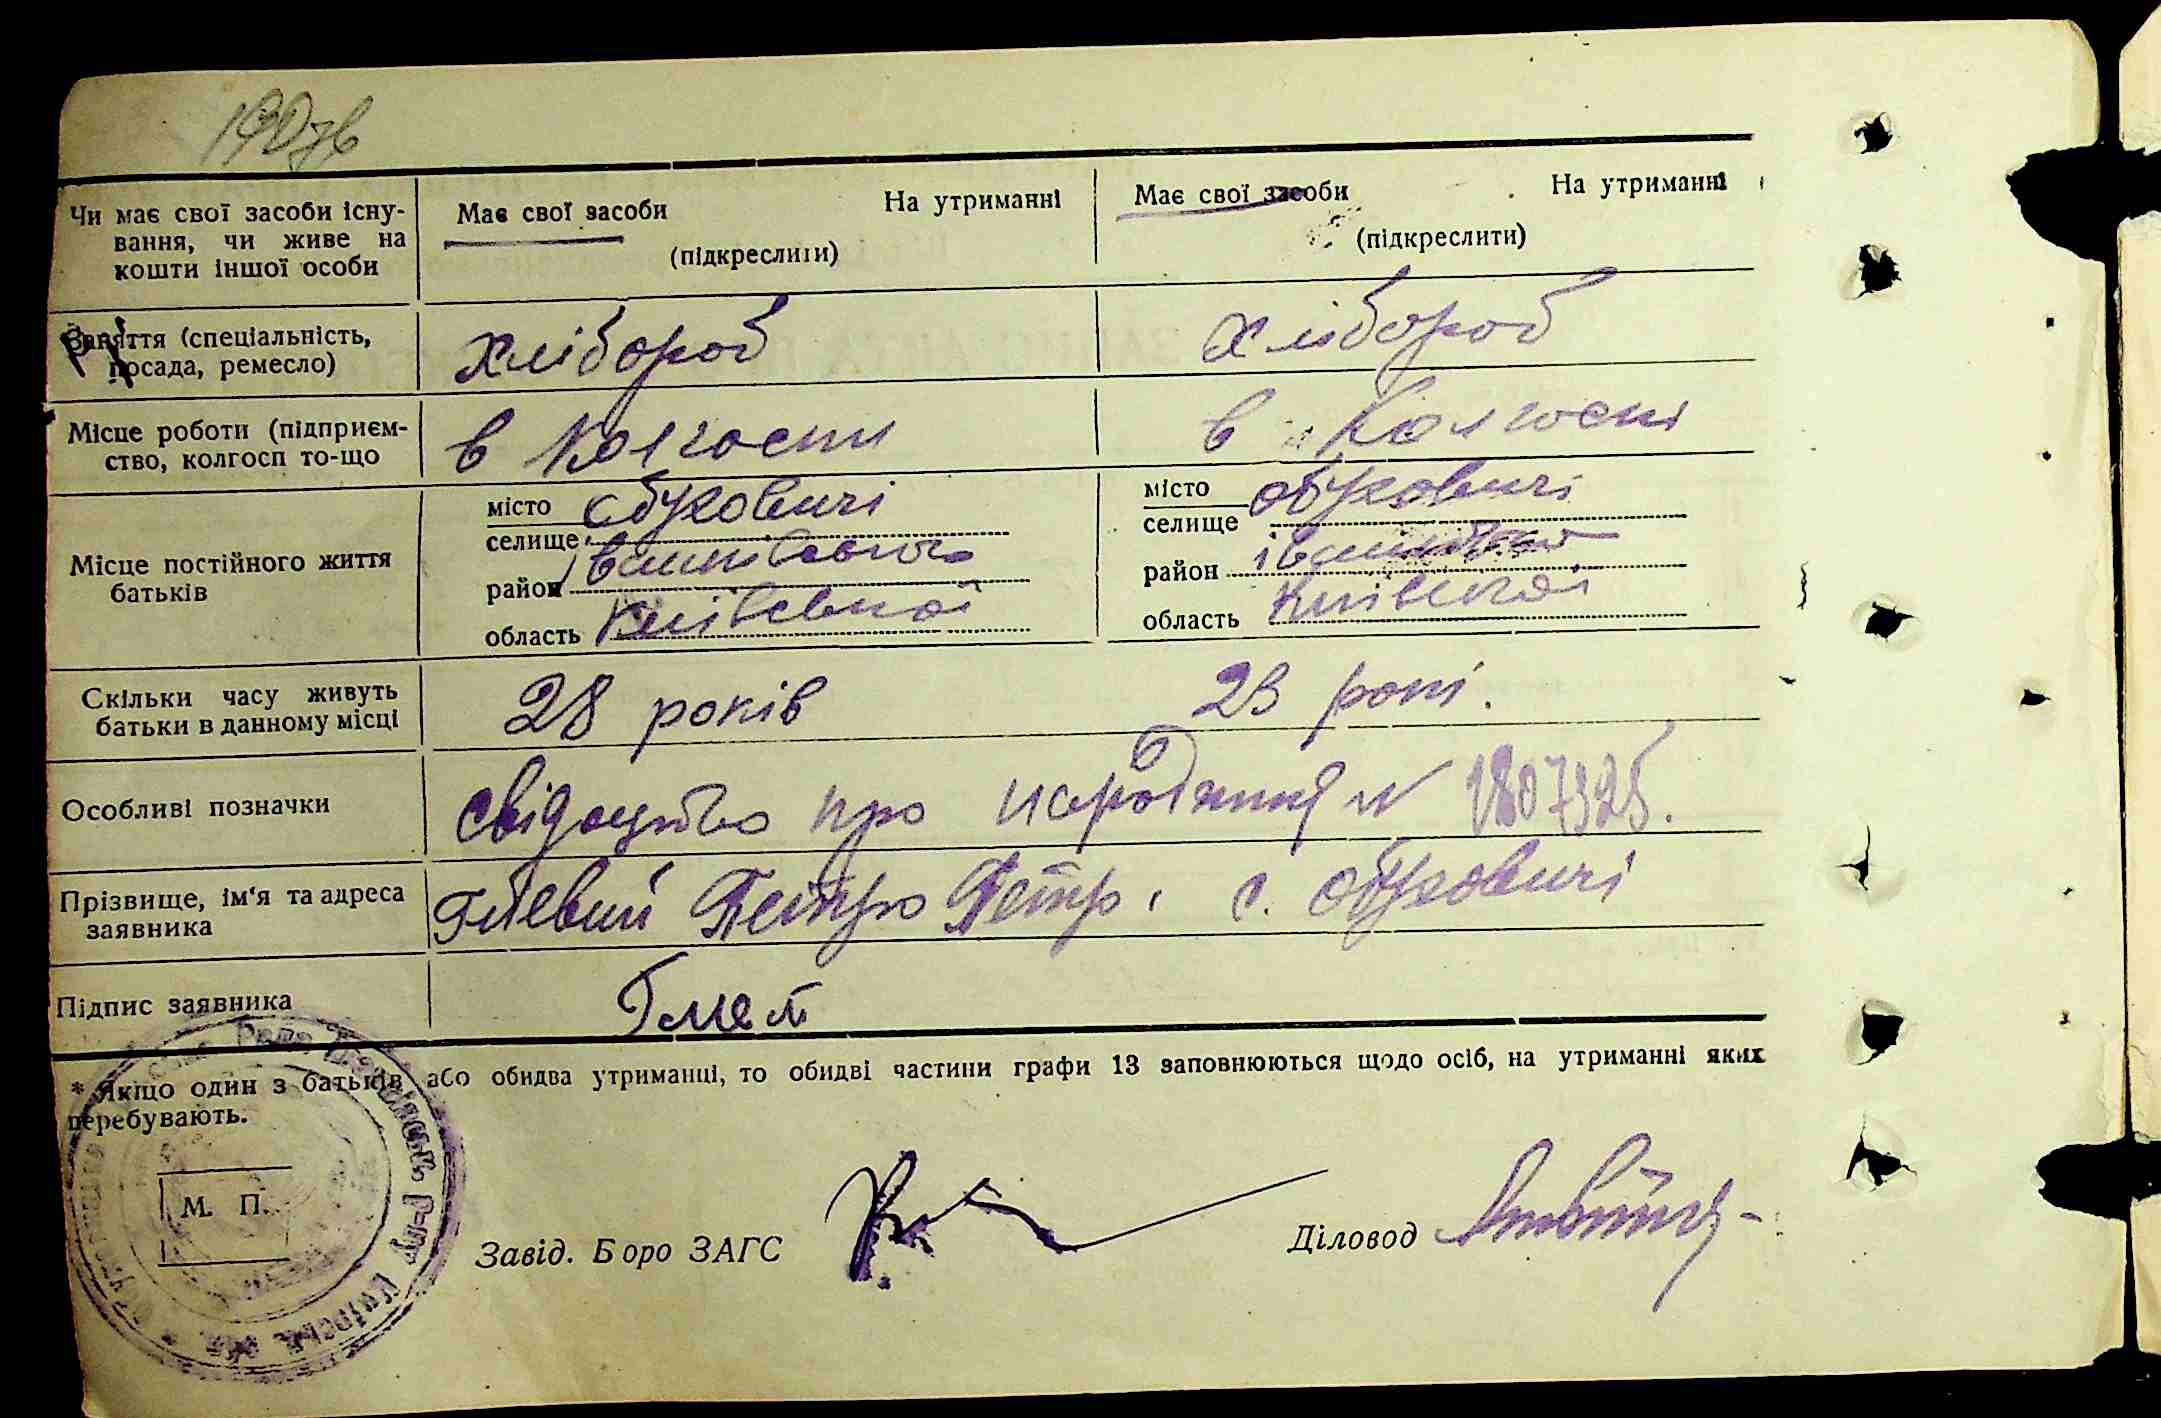 190 зв
Чи має свої засоби існу-
вання, чи живе на
кошти іншої особи
Має свої засоби На утриманні
(підкреслити)
Має свої засоби На утриманні
(підкреслити)
Заняття (спеціальність,
посада, ремесло)
хлібороб
хлібороб
Місце роботи (підприєм-
ство, колгосп то-що
в колгоспи
в колгоспі
Місце постійного життя
батьків
місто
селище
Обуховичі
район Іванківського
область Київської
місто
селище
Обуховичі
район
область Київської
Скільки часу живуть
батьки в данному місці
28 років
23 рокі.
Особливі позначки
свідоцтво про народження N 1807925.
Прізвище, ім'я та адреса
заявника
Петро Петр. с. Обуховичі
Підпис заявника
* Якщо один з батьків або обидва утриманці, то обидві частини графи 13 заповнюються щодо осіб, на утриманні яких
перебувають.
М. П.
Завід. Бюро ЗАГС
Діловод